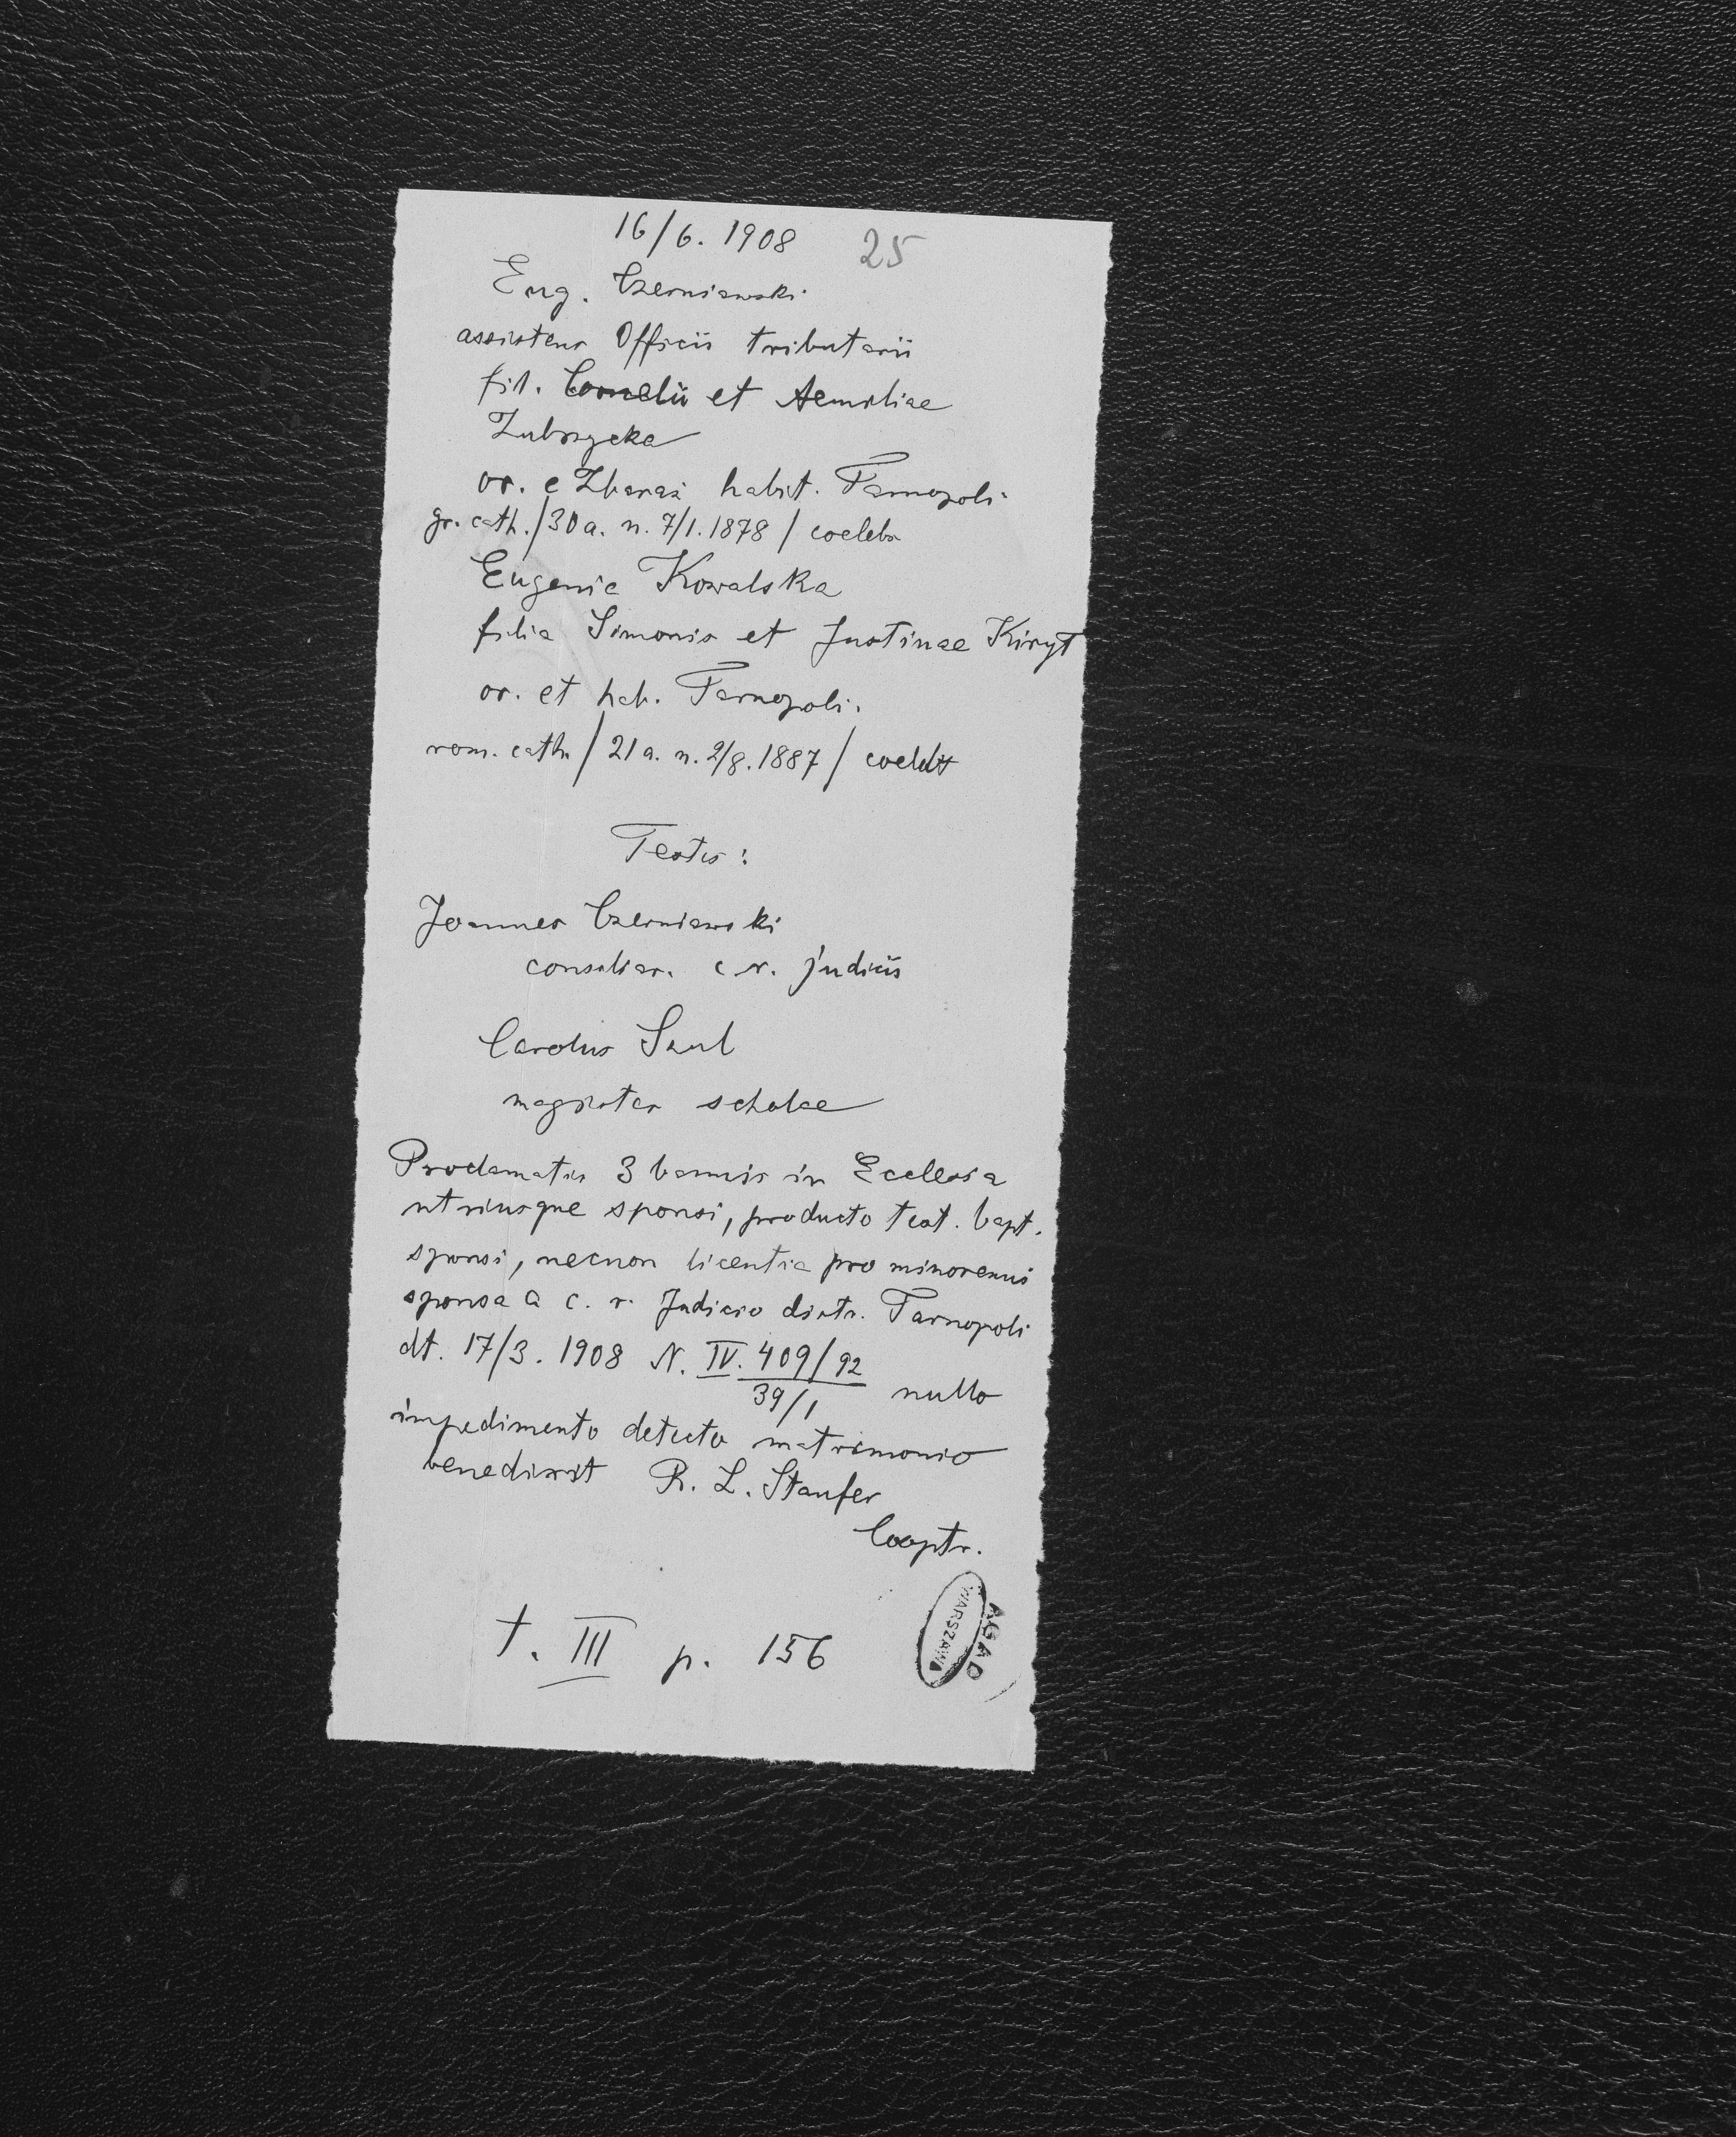 16/6. 1908 25
Eug. Czerniawski
assistens Officii tributarii
fil. Cornelii et Aemiliae
Zubrzycka
or. e Zbaraż habit. Tarnopoli
gr. cath. / 30 a. n. 7/1. 1878 / coelebs
Eugenia Kowalska
filia Simonis et Justinae Kiryt
or. et hab. Tarnopoli.
rom. cath. / 21 a. n. 2/8. 1887 /
Testes:
Joannes Czerniawski
consiliar. c. r. judicii
Carolus Saul
magister scholae
Proclamatis 3 bannis in Ecclesia
utriusque sponsi, producto test. bapt.
sponsi, necnon licentia pro minorenni
sponsa a c. r. Judicio distr. Tarnopoli
dt. 17/3. 1908 N. IV. 409/92
39/1 nullo
impedimento detecto matrimonio
benedixit R. L. Staufer
Cooptr.
t. III p. 156
AGAD
WARSZAWA